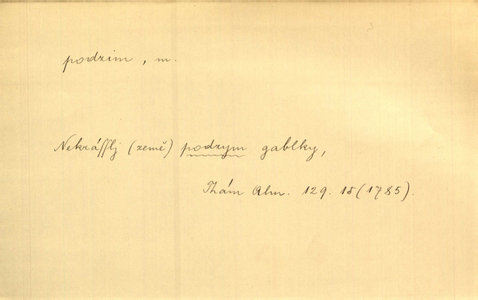 podzim, m.
Nekráſſlj (země) podzym gablky,
Thám Alm. 129. 18 (1785).